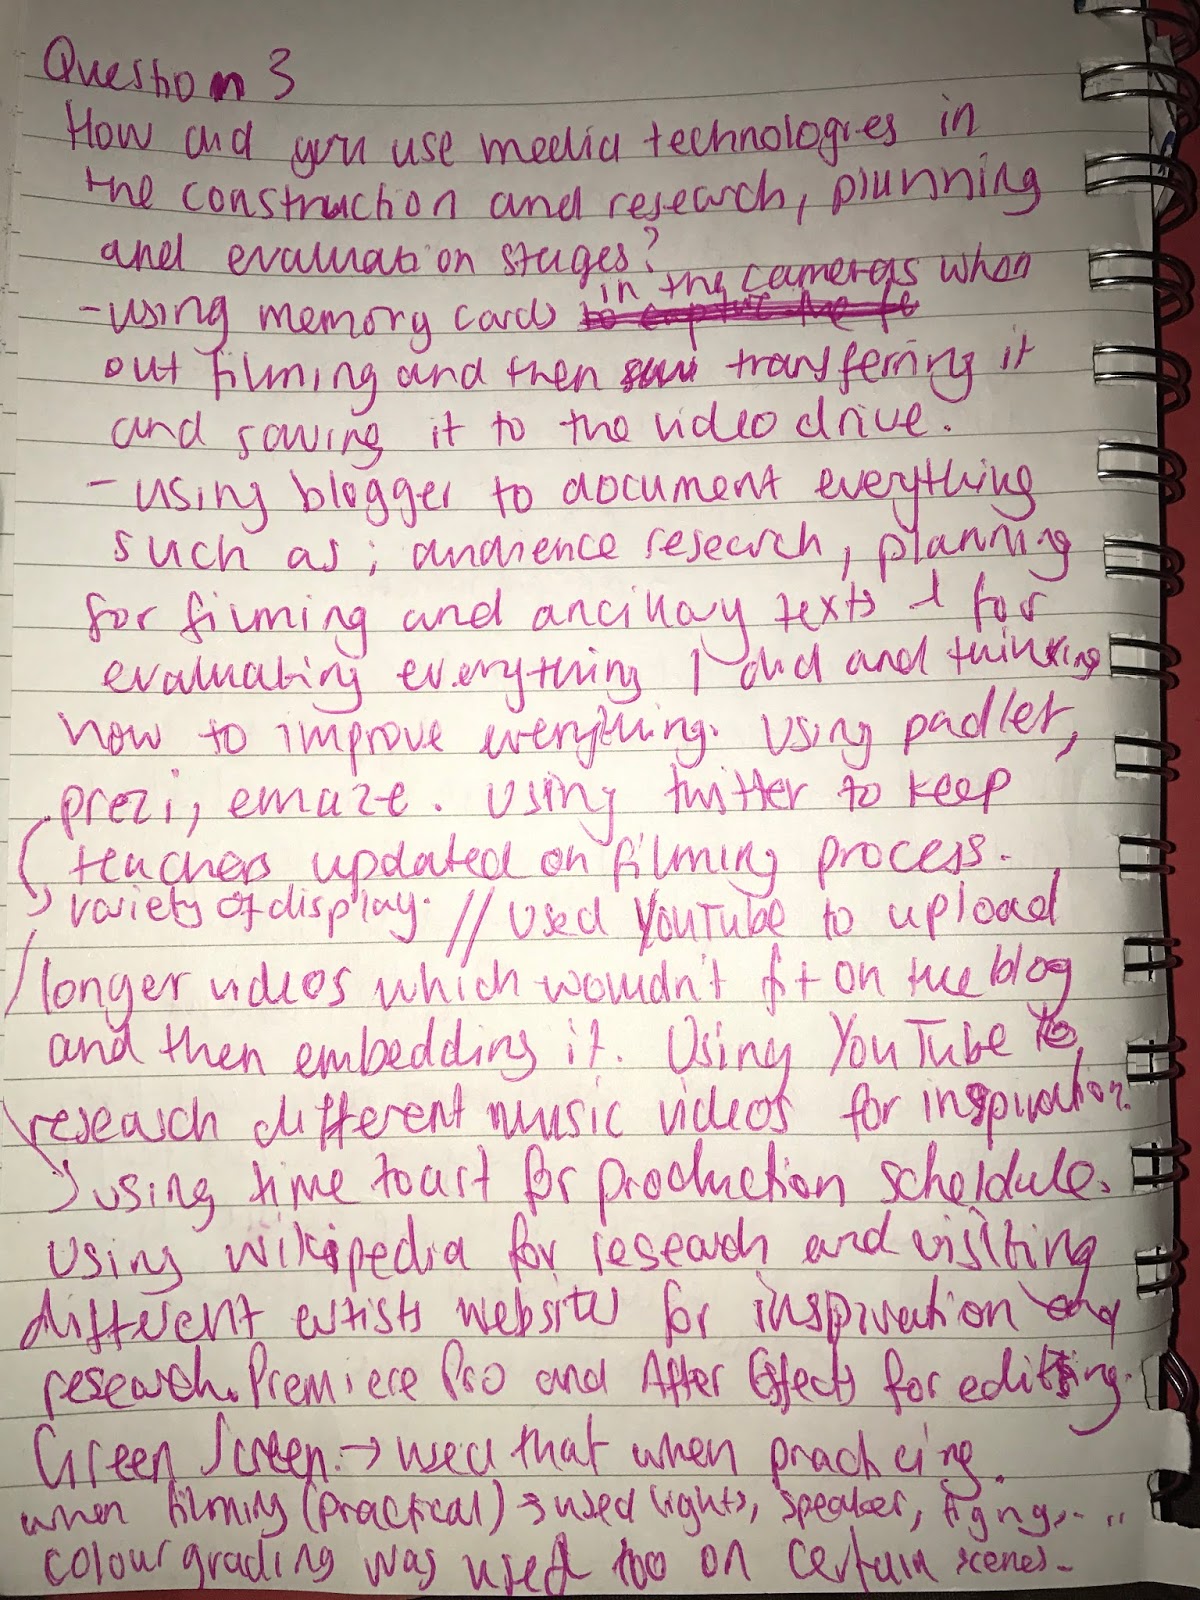 Question 3
How did you use media technologies in
the construction and research, planning
and evaluation stages?
in the cameras when
- using memory cards
out filming and then transferring it
and saving it to the video drive.
- using blogger to document everything
such as; audience research, planning
for filming and ancillary texts & for
evaluating everything I did and thinking
how to improve everything. Using padlet,
prezi, emaze. Using twitter to keep
teachers updated on filming process.
variety of display. // Used YouTube to upload
longer videos which wouldn't fit on the blog
and then embedding it. Using YouTube to
research different music videos for inspiration.
using time toast for production scheldule.
Using wikipedia for research and visiting
different artists website for inspiration and
research. Premiere Pro and After Effects for editing.
Green Screen. → used that when practicing.
when filming (practical) → used lights, speaker,
colour grading was used too on certain scenes.